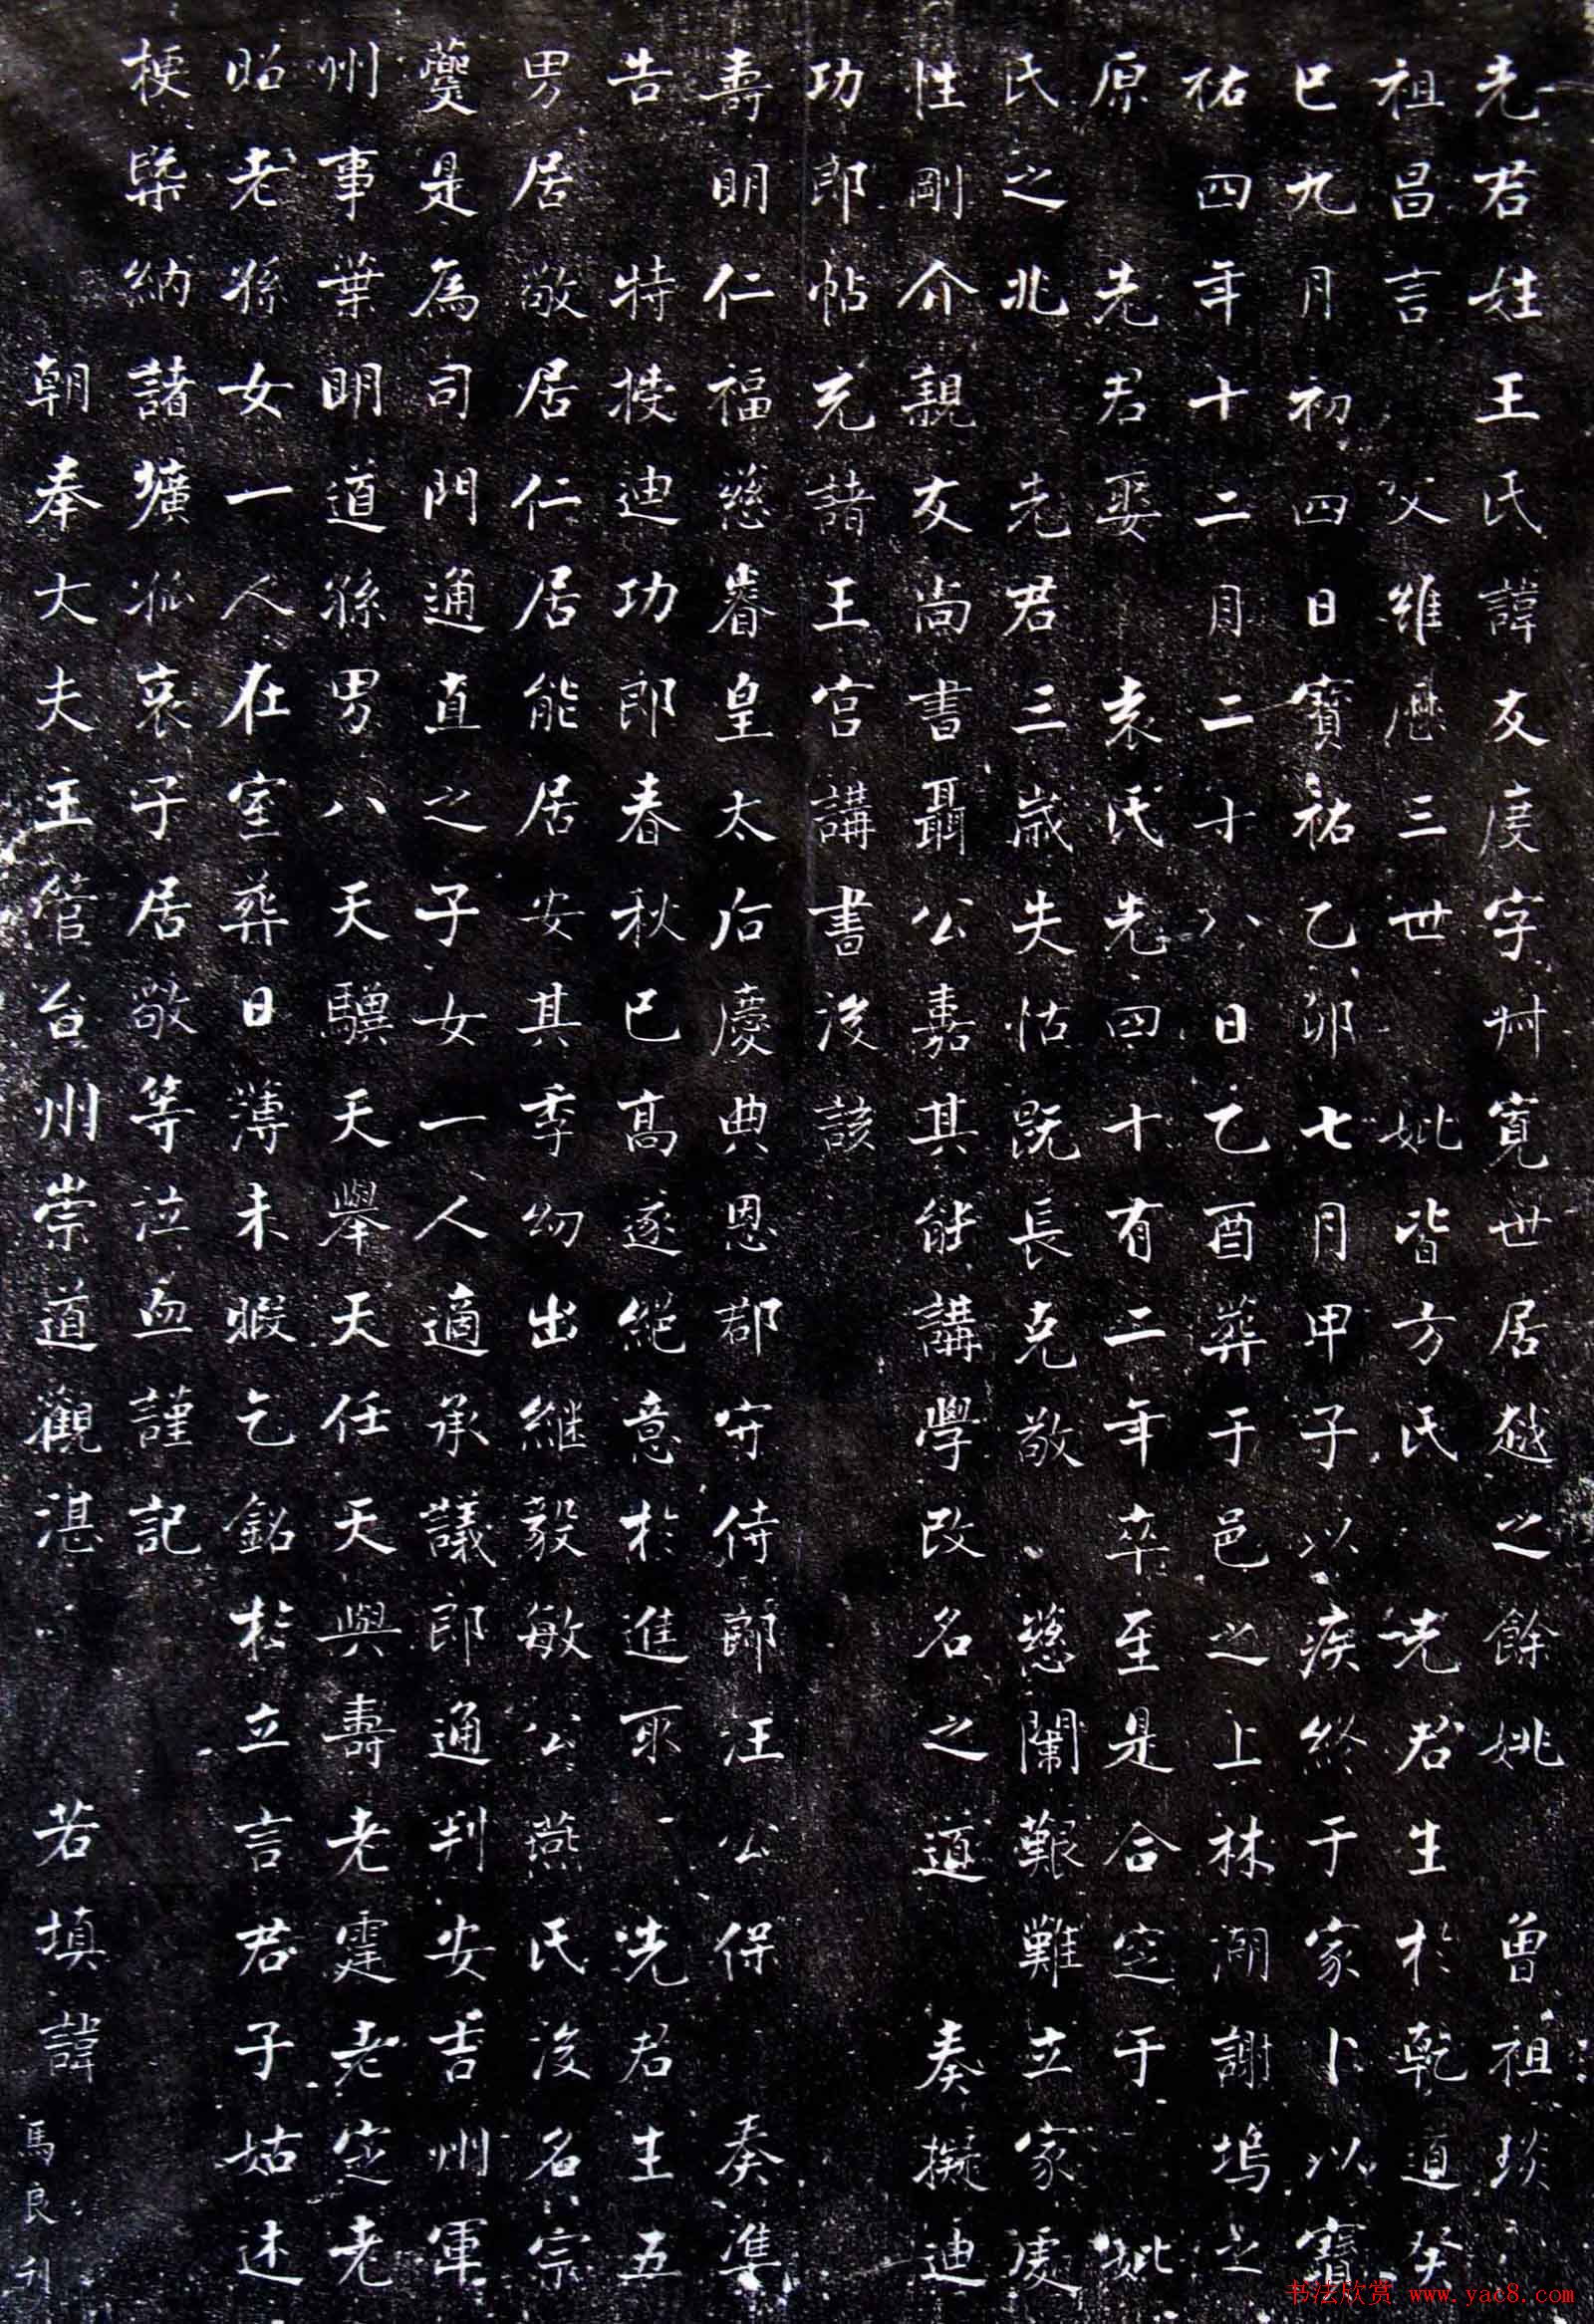 先君姓王氏諱友度字艸寬世居越之餘姚 曾祖琰
祖昌言 父維歷三世 妣皆方氏 先君生於乾道癸
巳九月初四日寶祐乙卯七月甲子以疾終于家卜以寶
祐四年十二月二十八日乙酉葬于邑之上林湖謝塢之
原 先君娶 袁氏先四十有二年卒至是合空于 妣
氏之北 先君三歲失怙既長克敬 慈闈艱難立家處
性剛介親友尚書聶公嘉其能講學改名之道 奏擬迪
功郎帖充諸王宮講書後該
壽明仁福慈睿皇太后慶典恩郡守侍郎汪公保 奏準
告 特授迪功郎春秋已高遂絕意於進取 先君生五
男居敬居仁居能居安其季幼出繼毅敏公燕氏後名宗
夔是為司門通直之子女一人適承議郎通判安吉州軍
州事葉明道孫男八天驥天舉天任天與壽老霆老定老
昭老孫女一人在室葬日薄未暇乞銘於立言君子姑述
梗槩納諸壙孤哀子居敬等泣血謹記
朝奉大夫主管台州崇道觀湛 若填諱 馬良刊
书法欣赏 www.yac8.com